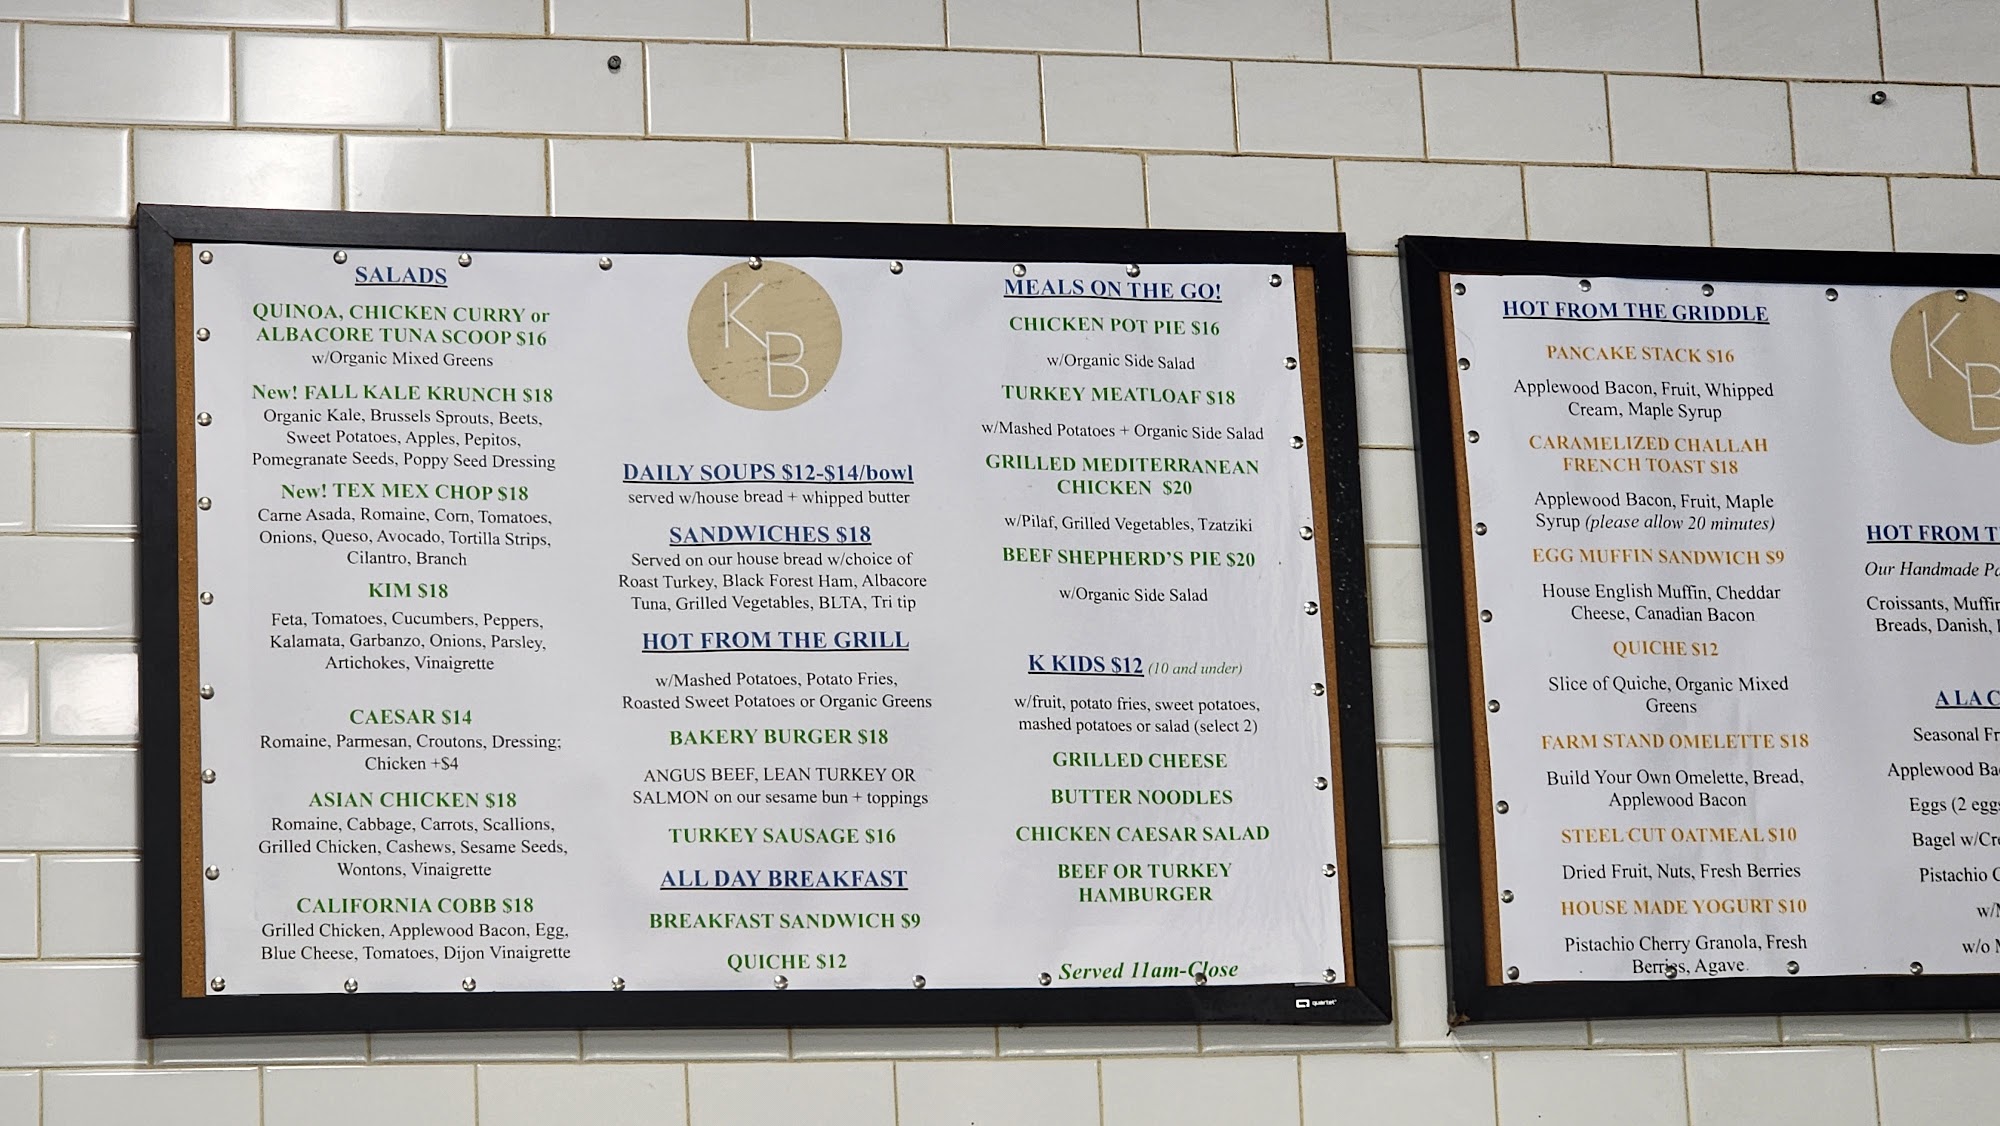 SALADS
QUINOA, CHICKEN CURRY or
ALBACORE TUNA SCOOP $16
w/Organic Mixed Greens
New! FALL KALE KRUNCH $18
Organic Kale, Brussels Sprouts, Beets,
Sweet Potatoes, Apples, Pepitos,
Pomegranate Seeds, Poppy Seed Dressing
New! TEX MEX CHOP $18
Carne Asada, Romaine, Corn, Tomatoes,
Onions, Queso, Avocado, Tortilla Strips,
Cilantro, Branch
KIM $18
Feta, Tomatoes, Cucumbers, Peppers,
Kalamata, Garbanzo, Onions, Parsley,
Artichokes, Vinaigrette
CAESAR $14
Romaine, Parmesan, Croutons, Dressing;
Chicken +$4
ASIAN CHICKEN $18
Romaine, Cabbage, Carrots, Scallions,
Grilled Chicken, Cashews, Sesame Seeds,
Wontons, Vinaigrette
CALIFORNIA COBB $18
Grilled Chicken, Applewood Bacon, Egg,
Blue Cheese, Tomatoes, Dijon Vinaigrette
KB
DAILY SOUPS $12-$14/bowl
served w/house bread + whipped butter
SANDWICHES $18
Served on our house bread w/choice of
Roast Turkey, Black Forest Ham, Albacore
Tuna, Grilled Vegetables, BLTA, Tri tip
HOT FROM THE GRILL
w/Mashed Potatoes, Potato Fries,
Roasted Sweet Potatoes or Organic Greens
BAKERY BURGER $18
ANGUS BEEF, LEAN TURKEY OR
SALMON on our sesame bun + toppings
TURKEY SAUSAGE $16
ALL DAY BREAKFAST
BREAKFAST SANDWICH $9
QUICHE $12
MEALS ON THE GO!
CHICKEN POT PIE $16
w/Organic Side Salad
TURKEY MEATLOAF $18
w/Mashed Potatoes + Organic Side Salad
GRILLED MEDITERRANEAN
CHICKEN $20
w/Pilaf, Grilled Vegetables, Tzatziki
BEEF SHEPHERD'S PIE $20
w/Organic Side Salad
K KIDS $12 (10 and under)
w/fruit, potato fries, sweet potatoes,
mashed potatoes or salad (select 2)
GRILLED CHEESE
BUTTER NOODLES
CHICKEN CAESAR SALAD
BEEF OR TURKEY
HAMBURGER
Served 11am-Close
quartet
HOT FROM THE GRIDDLE
PANCAKE STACK $16
Applewood Bacon, Fruit, Whipped
Cream, Maple Syrup
CARAMELIZED CHALLAH
FRENCH TOAST $18
Applewood Bacon, Fruit, Maple
Syrup (please allow 20 minutes)
EGG MUFFIN SANDWICH $9
House English Muffin, Cheddar
Cheese, Canadian Bacon
QUICHE $12
Slice of Quiche, Organic Mixed
Greens
FARM STAND OMELETTE $18
Build Your Own Omelette, Bread,
Applewood Bacon
STEEL CUT OATMEAL $10
Dried Fruit, Nuts, Fresh Berries
HOUSE MADE YOGURT $10
Pistachio Cherry Granola, Fresh
Berries, Agave
KB
HOT FROM
Our Handmade
Croissants,
Breads, Danish,
A LA
Seasonal
Applewood
Eggs (2
Bagel
Pistachio
w/o